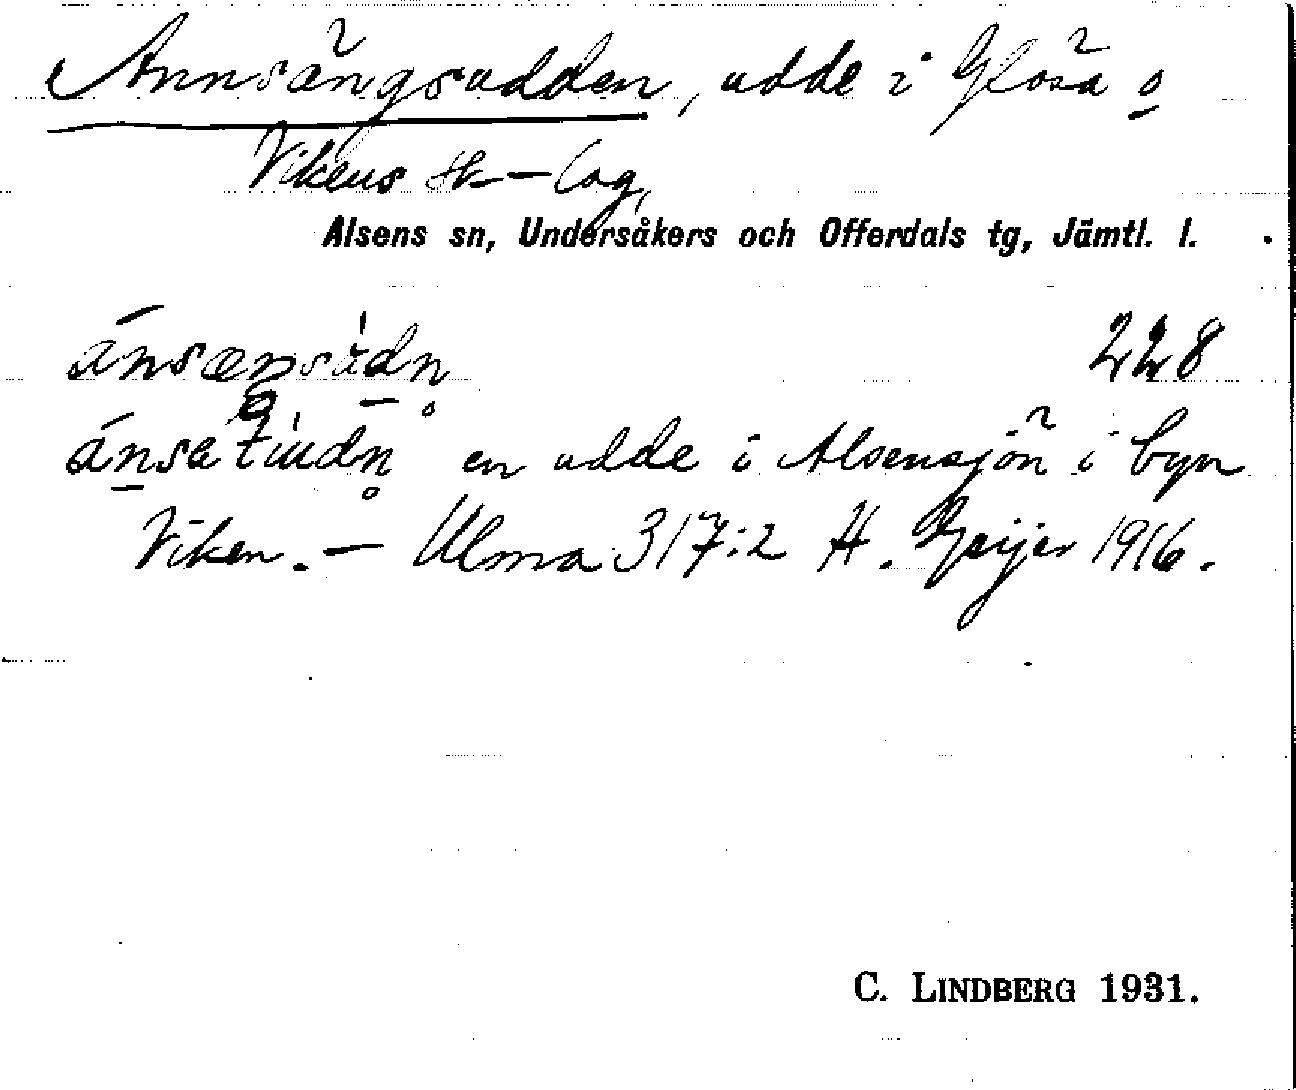 Annsängsudden, udde i Glösa o
Vikens sk-lag,
Alsens sn, Undersåkers och Offerdals tg, Jämtl. l.
228
en udde i Alsensjön i byn
Viken. – Ulma 317:2 H. Geijer 1916.
C. LINDBERG 1931.